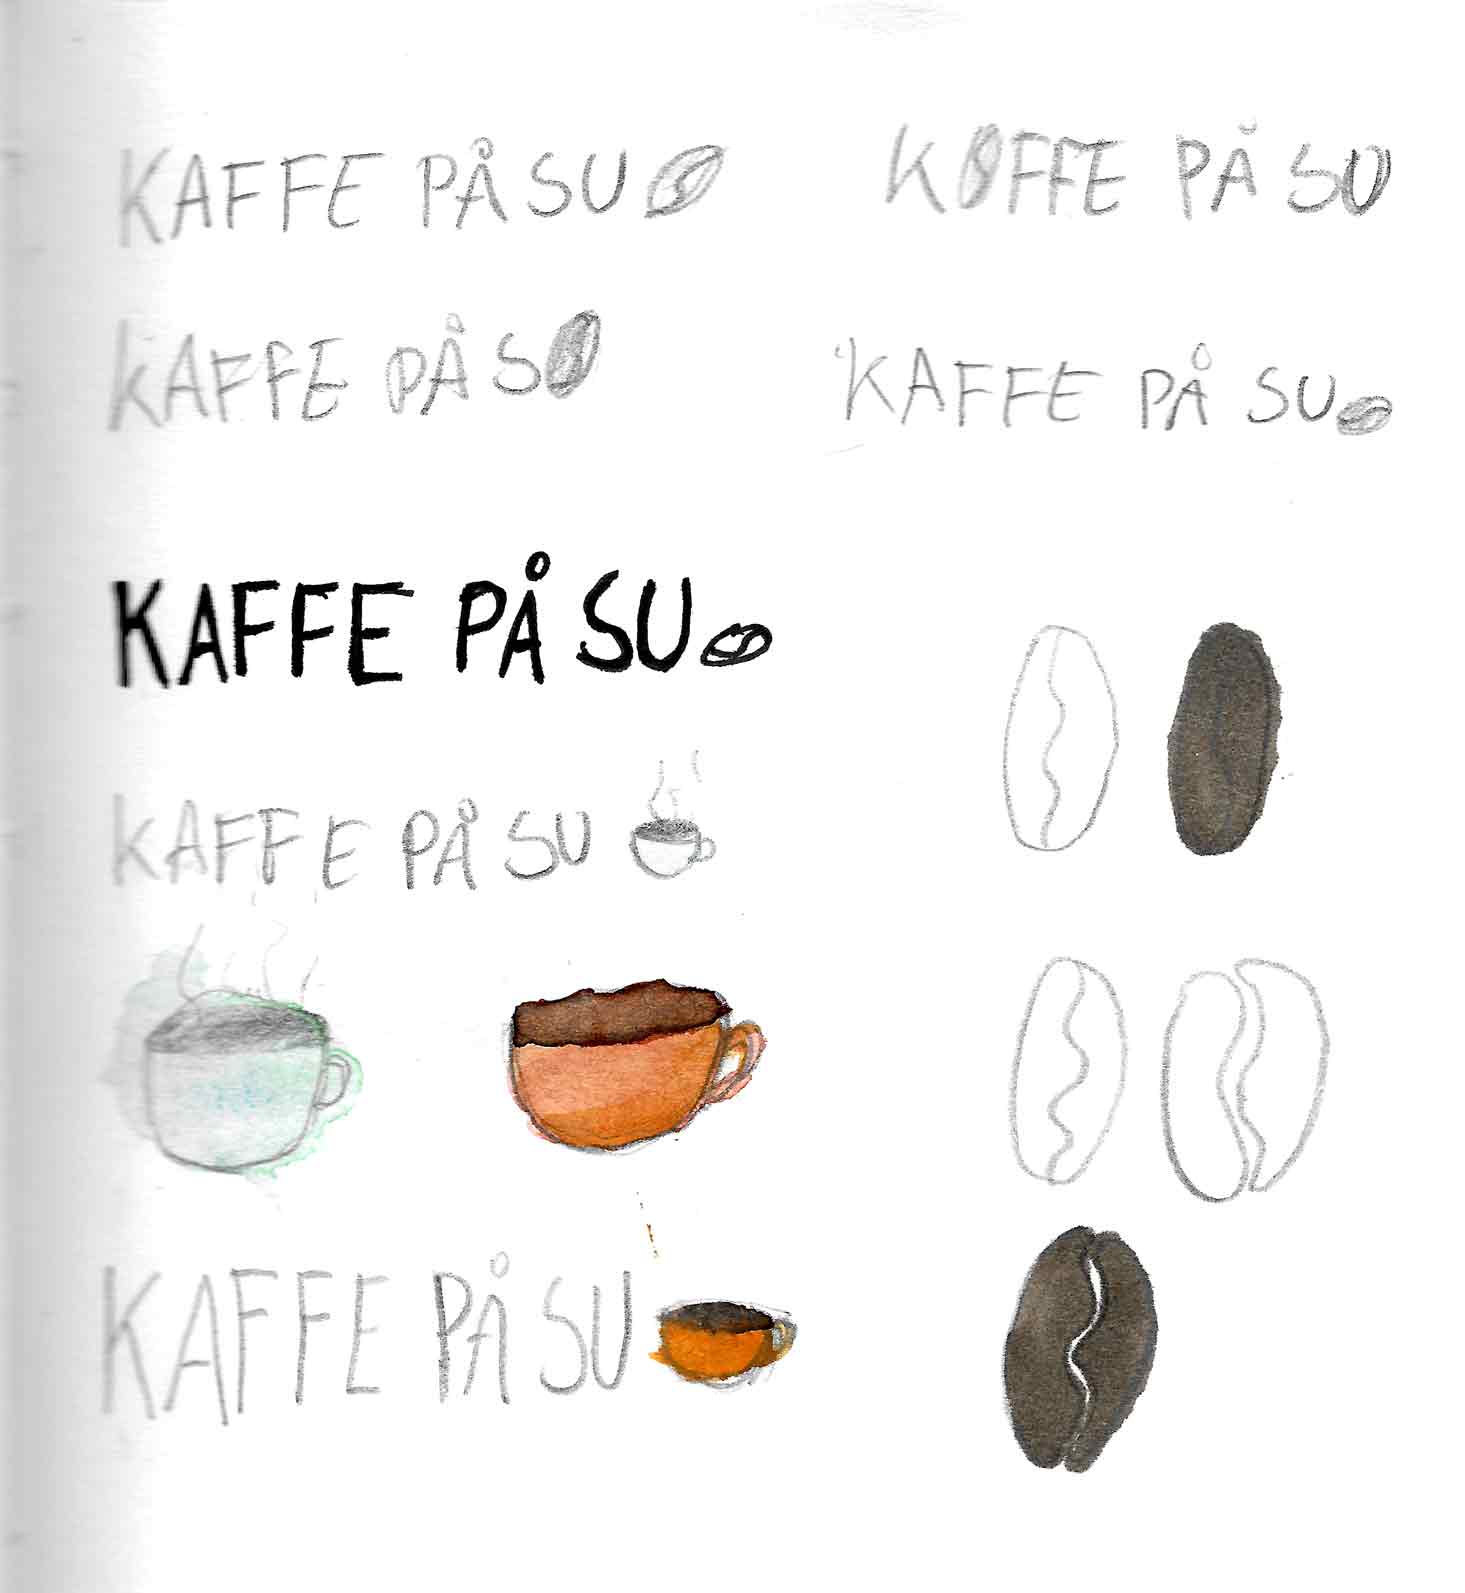 KAFFE PÅ SU
KOFFE PÅ SU
KAFFE PÅ S
KAFFE PÅ SU
KAFFE PÅ SU
KAFFE PÅ SU
KAFFE PÅ SU